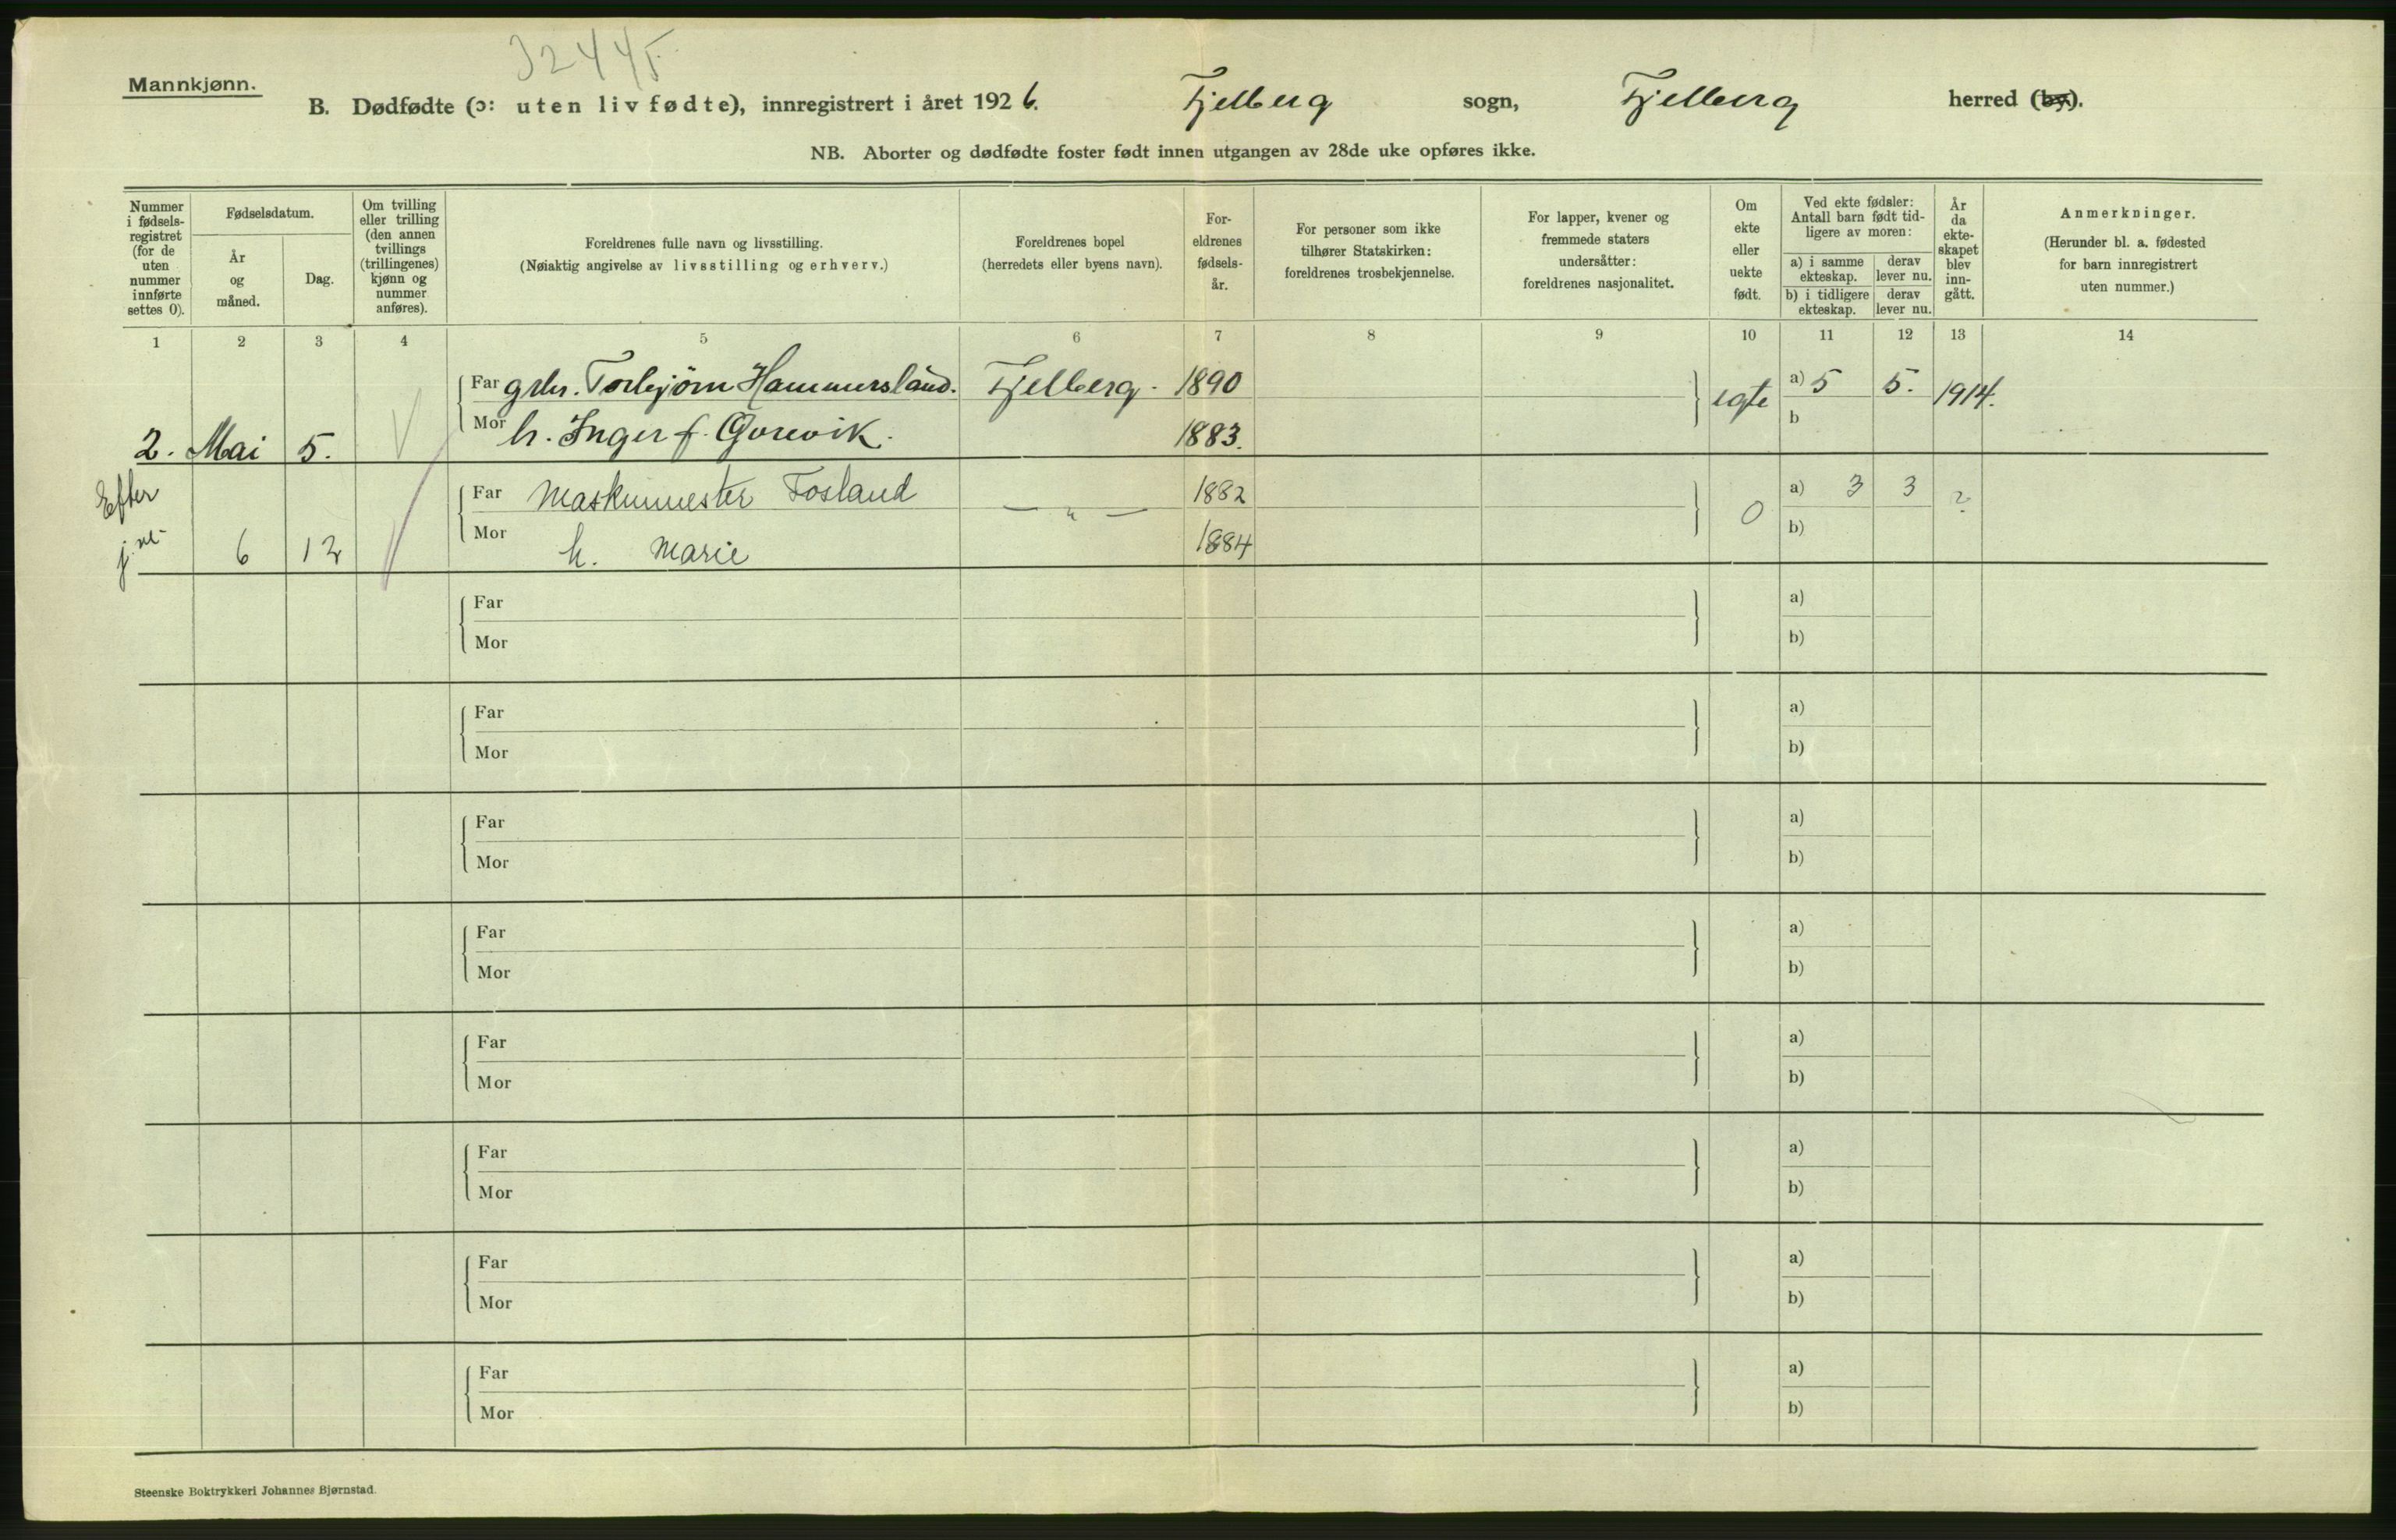 32445
Mannkjønn.
B. Dødfødte (ɔ: uten liv fødte), innregistrert i året 1926. Fjelberg sogn, Fjelberg herred (by).
NB. Aborter og dødfødte foster født innen utgangen av 28de uke opføres ikke.
Nummer i fødsels-registret (for de uten nummer innførte settes 0).
Fødselsdatum.
År og måned.
Dag.
Om tvilling eller trilling (den annen tvillings (trillingenes) kjønn og nummer anføres).
Foreldrenes fulle navn og livsstilling.
(Nøiaktig angivelse av livsstilling og erhverv.)
Foreldrenes bopel
(herredets eller byens navn).
For-eldrenes fødsels-år.
For personer som ikke tilhører Statskirken: foreldrenes trosbekjennelse.
For lapper, kvener og fremmede staters undersåtter: foreldrenes nasjonalitet.
Om ekte eller uekte født.
Ved ekte fødsler: Antall barn født tid-ligere av moren:
a) i samme ekteskap. derav lever nu.
b) i tidligere ekteskap. derav lever nu.
År da ekte-skapet blev inn-gått.
Anmerkninger.
(Herunder bl. a. fødested for barn innregistrert uten nummer.)
1 2 3 4 5 6 7 8 9 10 11 12 13 14
Far gbr. Torbjörn Hammersland. Fjelberg. 1890 egte a) 5 5. 1914.
2. Mai 5. Mor h. Inger f. Gjerevik. 1883. b
Efter Far Maskinmester Fosland — " — 1882 0 a) 3 3 ?
j.m. 6 12 Mor h. Marie 1884 b)
Far a)
Mor b)
Far a)
Mor b)
Far a)
Mor b)
Far a)
Mor b)
Far a)
Mor b)
Far a)
Mor b)
Far a)
Mor b)
Far a)
Mor b)
Steenske Boktrykkeri Johannes Bjørnstad.